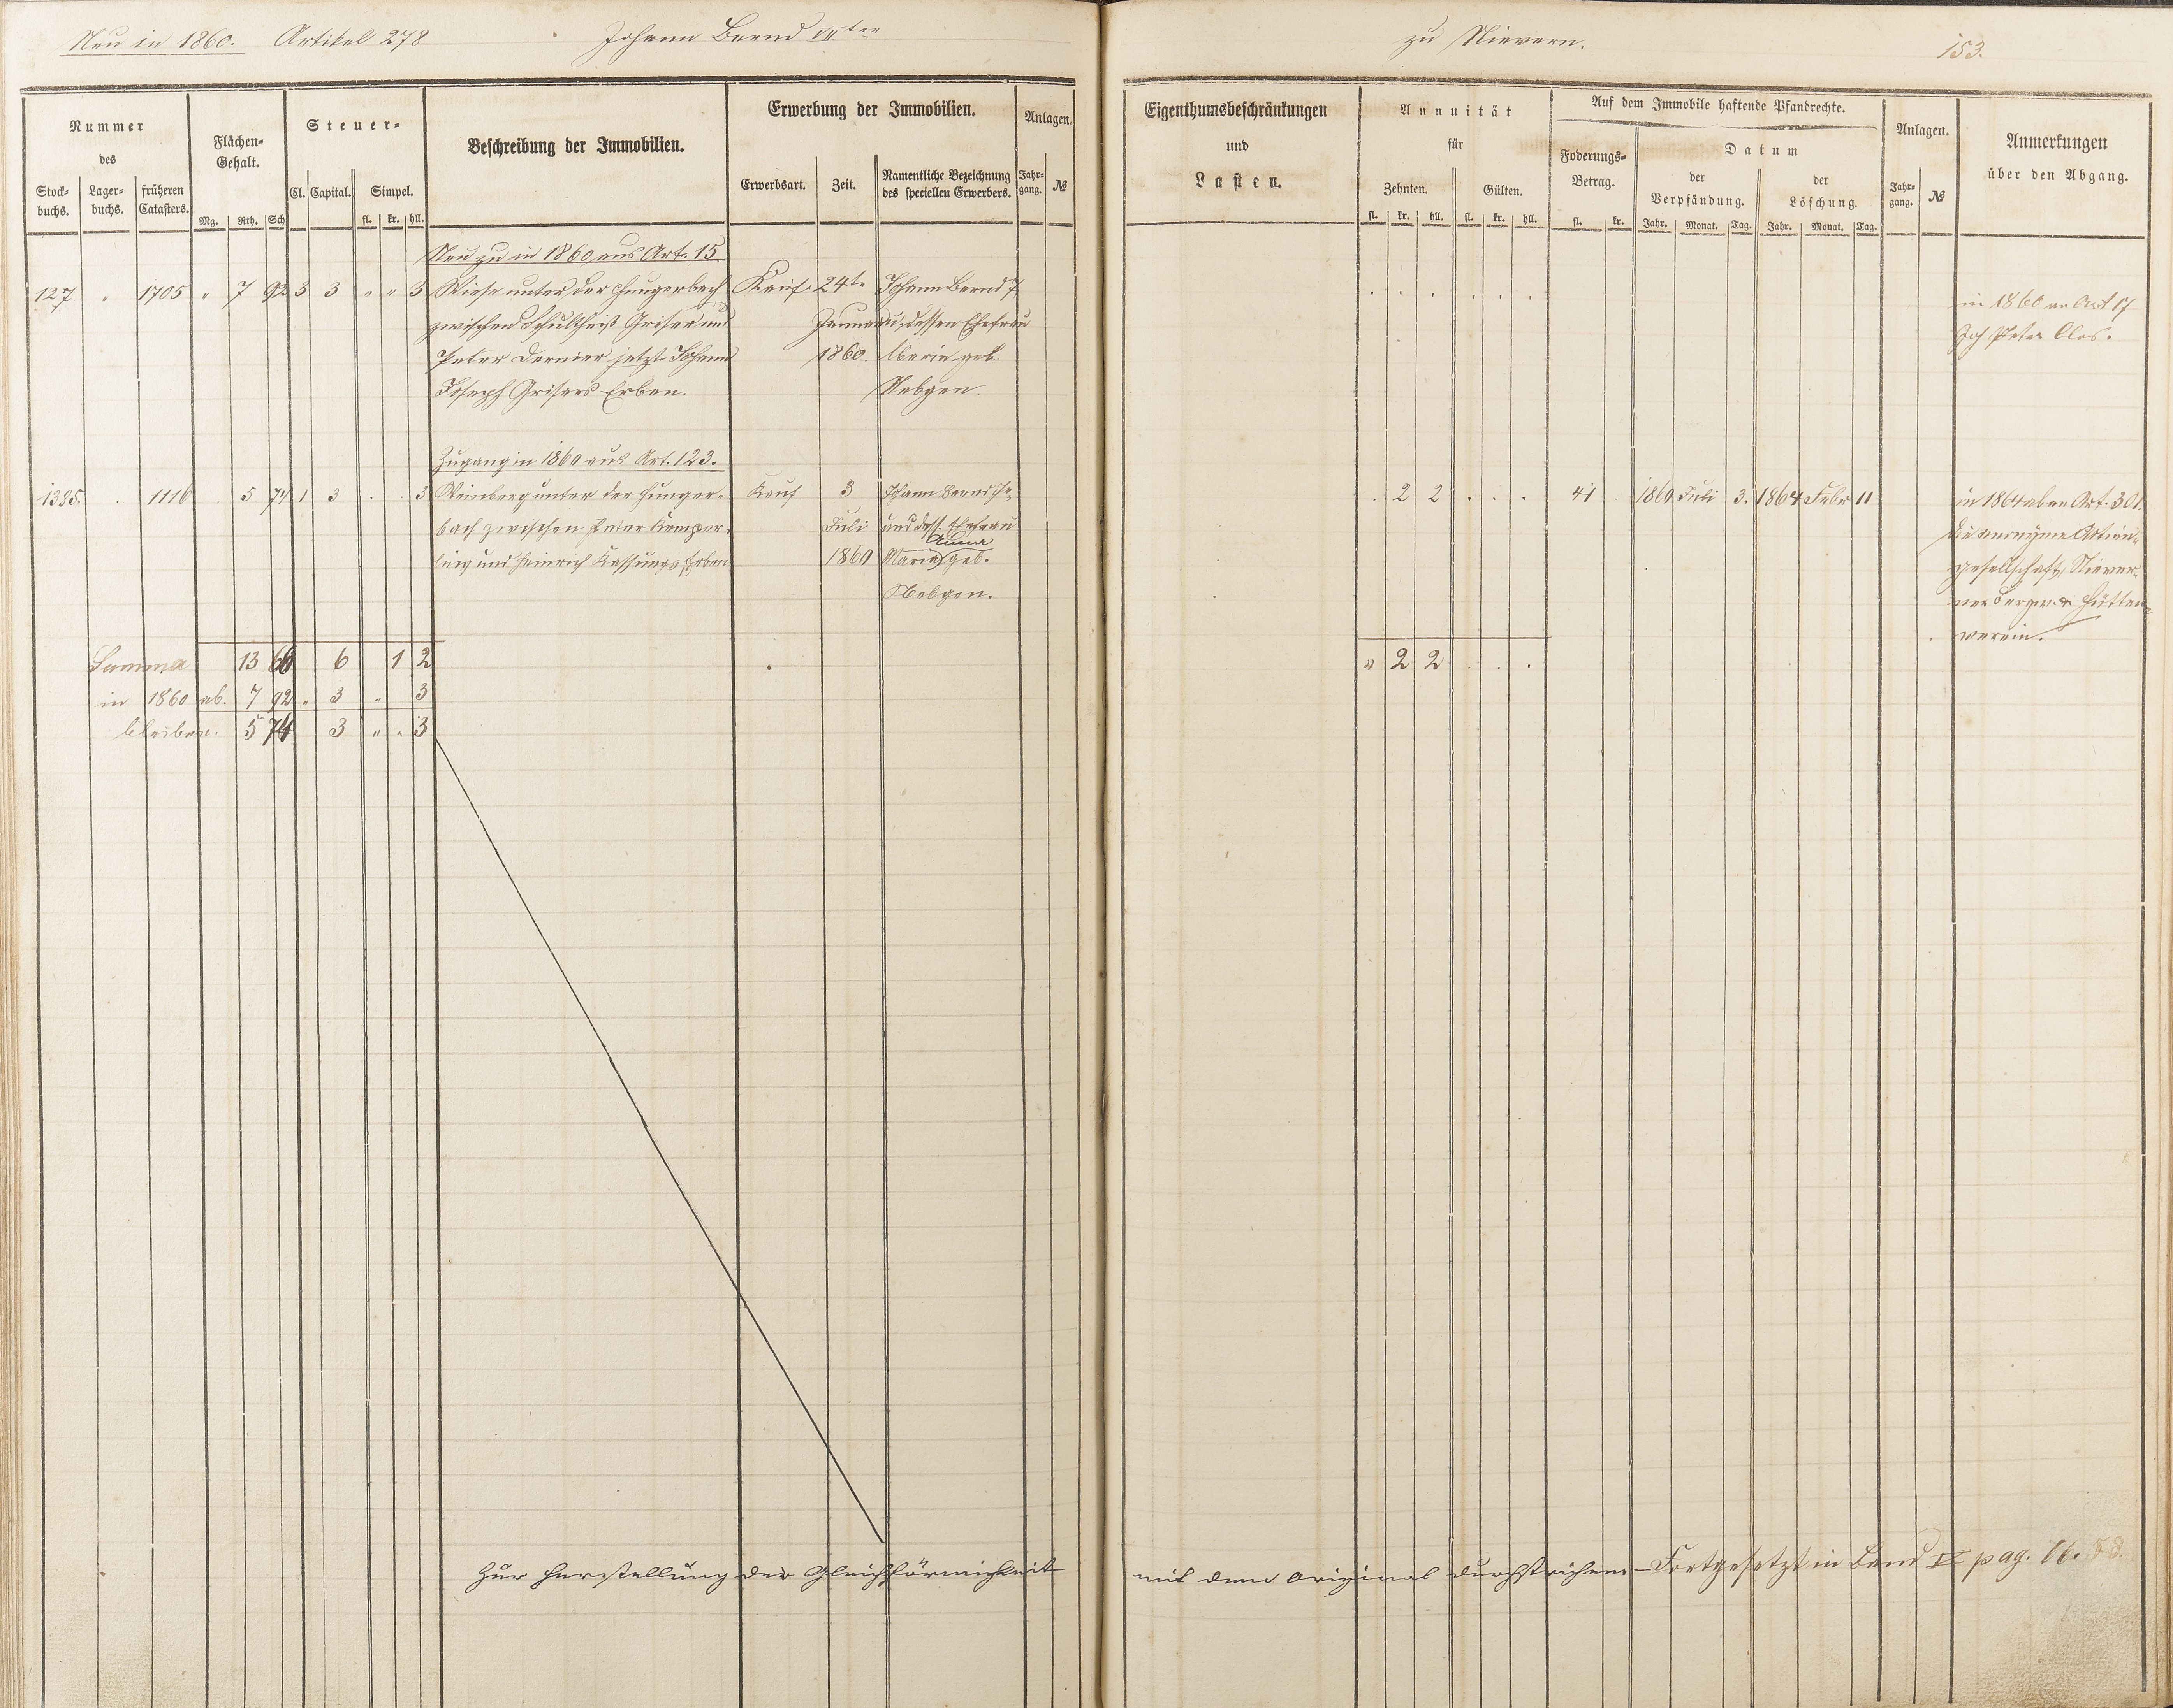 Neu in 1860. Artikel 278 Johann Bernd IV ter zu Nievern. 153.
Nummer des
Stock-buchs. Lager-buchs. früheren Catasters.
Flächen-Gehalt.
Mg. Rth. Sch
Steuer-
Cl. Capital. Simpel.
fl. kr. hll.
Beschreibung der Immobilien.
Erwerbung der Immobilien.
Erwerbsart. Zeit. Namentliche Bezeichnung des speciellen Erwerbers.
Anlagen.
Jahr-gang. №
Eigenthumsbeschränkungen
und
Lasten.
Annuität
für
Zehnten. Gülten.
fl. kr. hll. fl. kr. hll.
Auf dem Immobile haftende Pfandrechte.
Foderungs-Betrag.
fl. kr.
Datum
der Verpfändung. der Löschung.
Jahr. Monat. Tag. Jahr. Monat. Tag.
Anlagen.
Jahr-gang. №
Anmerkungen
über den Abgang.
Neu zu in 1860 aus Art. 15.
127 " 1705 " 7 92 3 3 " " 3 Wiese unter der Hungerbach Kauf. 24te Johann Bernd in 1860 an Art 17
zwischen Schultheiß Griser und Januar u. dessen Ehefrau Joh. Peter Clos.
Peter Dernier jetzt Johann 1860. Maria geb.
Joseph Grisers Erben. Nebgen.
Zugang in 1860 aus Art. 123.
1395. . 1116 . 5 74 1 3 . . 3 Weinberg unter der Hunger- Kauf 3 Johann Bernd . 2 2 . . . 41 . 1860 Juli 3. 1864 Febr 11 in 1864 ab an Art. 301.
bach zwischen Peter Kemper- Juli und dess. Ehefrau die anonyme Aktien-
ling und Heinrich Erben 1860 Anna Maria geb. gesellschaft Niever-
Nebgen. ner Bergw. & Hütten-
verein.
Summa 13 66 6 1 2 " 2 2 . . .
in 1860 ab. 7 92 " 3 " 3
bleiben. 5 74 3 " " 3
Zur Herstellung der Gleichförmigkeit mit dem Original durchstrichen – Fortgesetzt in Band pag.